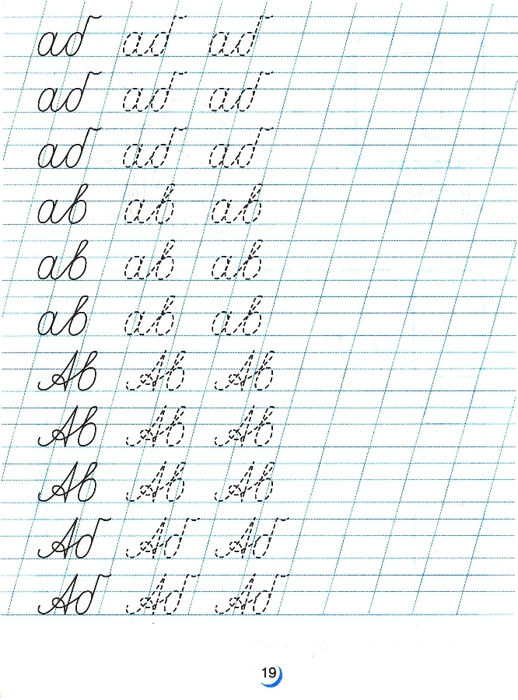 аб аб аб
аб аб аб
аб аб аб
ав ав ав
ав ав ав
ав ав ав
Ав Ав Ав
Ав Ав Ав
Ав Ав Ав
Аб Аб Аб
Аб Аб Аб
19